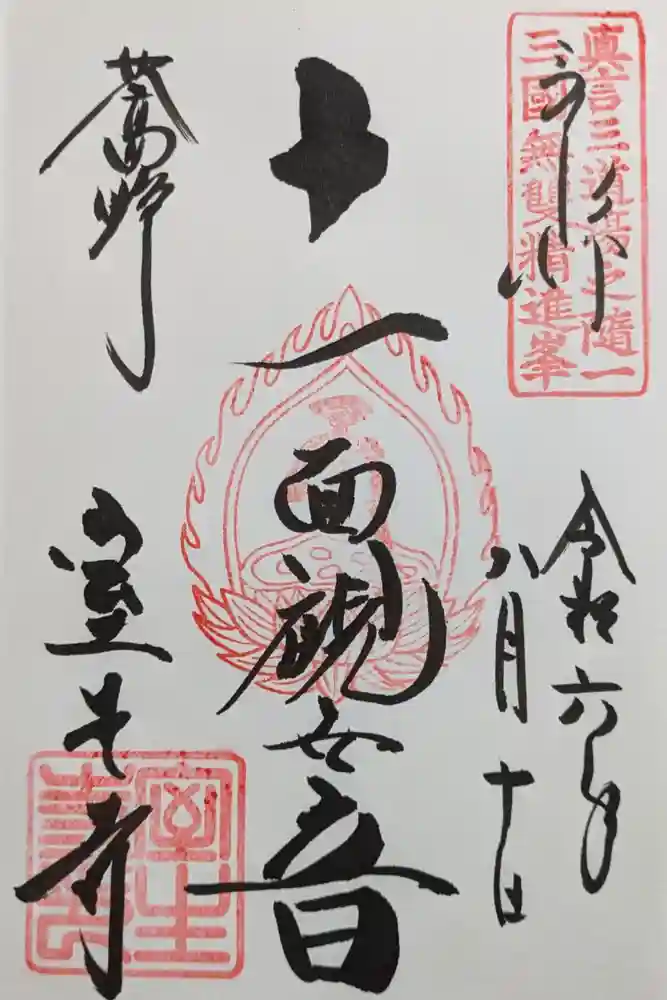 奉拝
真言三道場之隨一
三國無雙精進峯
令和六年
八月十日
十一面観世音
女人高野
室生寺